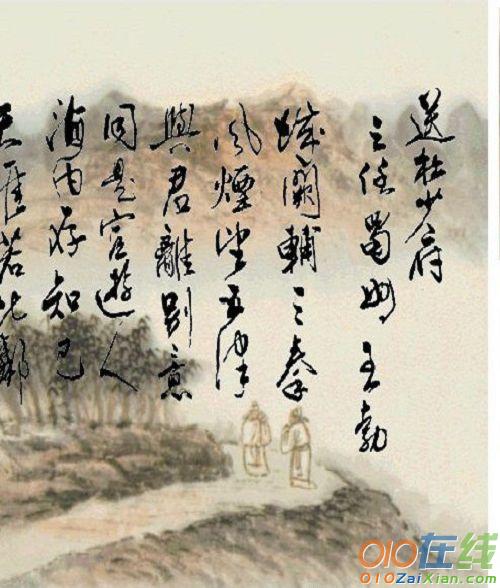 送杜少府
之任蜀州 王勃
城闕輔三秦
風煙望五津
與君離别意
同是宦遊人
海内存知己
天涯若比鄰
010在线
010ZaiXian.com